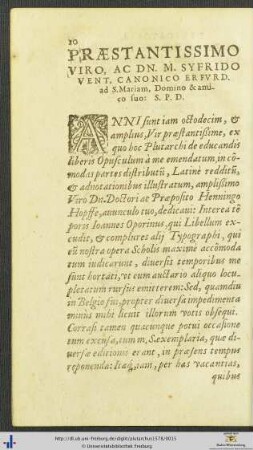 20
PRÆSTANTISSIMO
VIRO, AC DN. M. SYFRIDO
VENT, CANONICO ERFVRD.
ad S. Mariam, Domino & ami-
co suo: S. P. D.
ANNI sunt iam octodecim, &
amplius, Vir præstantissime, ex
quo hoc Plutarchi de educandis
liberis Opusculum à me emendatum, in cō-
modas partes distributū, Latinè redditū,
& adnotationibus illustratum, amplissimo
Viro Dn. Doctori ac Præposito Henningo
Hopffe, auunculo tuo, dedicaui: Interea tē
poris Ioannes Oporinus, qui Libellum ex-
cudit, & complures alij Typographi, qui
eū nostra opera Scholis maximè accōmoda
tum iudicarunt, diuersis temporibus me
sunt hortati, vt eum auctario aliquo locu-
pletatum rursus emitterem: Sed, quamdiu
in Belgio fui, propter diuersa impedimenta
minùs mihi licuit illorum votis obsequi.
Corrasi tamen quacunque potui occasione
tum excusa, tum m. s. exemplaria, quæ di-
uersæ editionis erant, in præsens tempus
reponenda: Itaq̃, iam, per has vacantias,
quibus
http://dl.ub.uni-freiburg.de/diglit/plutarchus1578/0015
© Universitätsbibliothek Freiburg